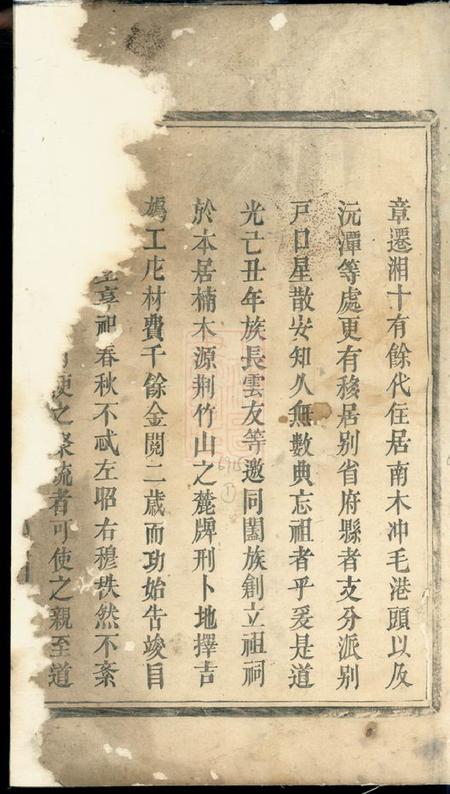 章遷湘十有餘代住居南木冲毛港頭以及
沅潭等處更有移居别省府縣者支分派别
戸口星散安知久無數典忘祖者乎爰是道
光己丑年族長雲友等邀同闔族創立祖祠
於本居楠木源荆竹山之麓牌刑卜地擇吉
鳩工庀材費千餘金閲二歲而功始告竣目
享祀春秋不忒左昭右穆秩然不紊
使之聚疏者可使之親至道